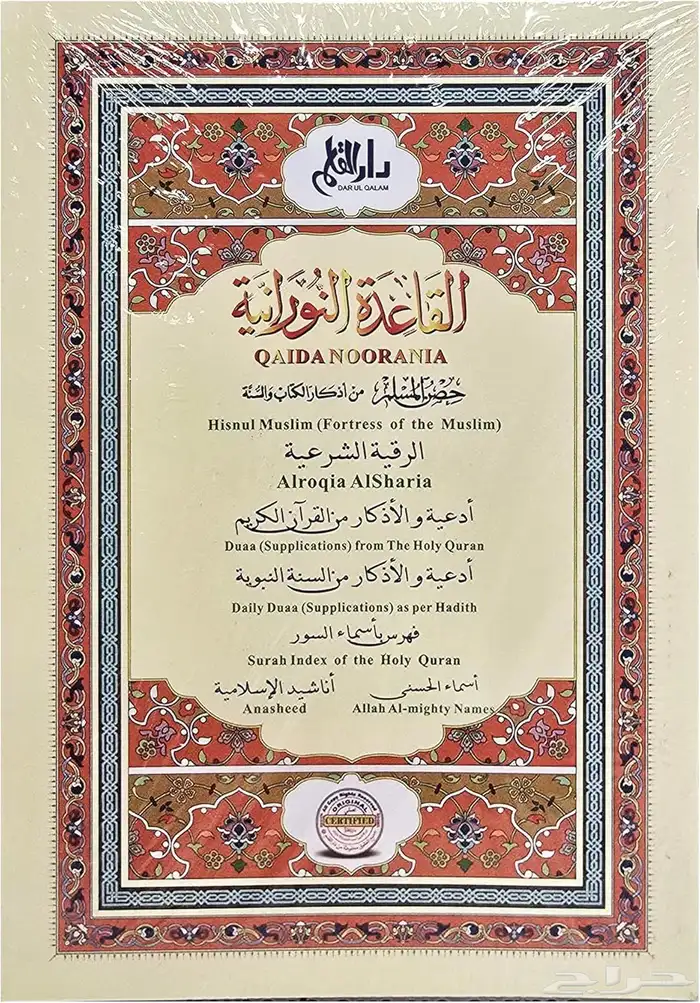 دار القلم
DAR UL QALAM
القَاعِدَة النُّورَانِيَّة
QAIDA NOORANIA
حِصْنُ المُسْلِم مِنْ أَذْكَارِ الكِتَابِ وَالسُّنَّة
Hisnul Muslim (Fortress of the Muslim)
الرقية الشرعية
Alroqia AlSharia
أدعية و الأذكار من القرآن الكريم
Duaa (Supplications) from The Holy Quran
أدعية و الأذكار من السنة النبوية
Daily Duaa (Supplications) as per Hadith
فهرس بأسماء السور
Surah Index of the Holy Quran
أسماء الحسنى أناشيد الإسلامية
Anasheed Allah Al-mighty Names
ORIGINAL
CERTIFIED
حراج